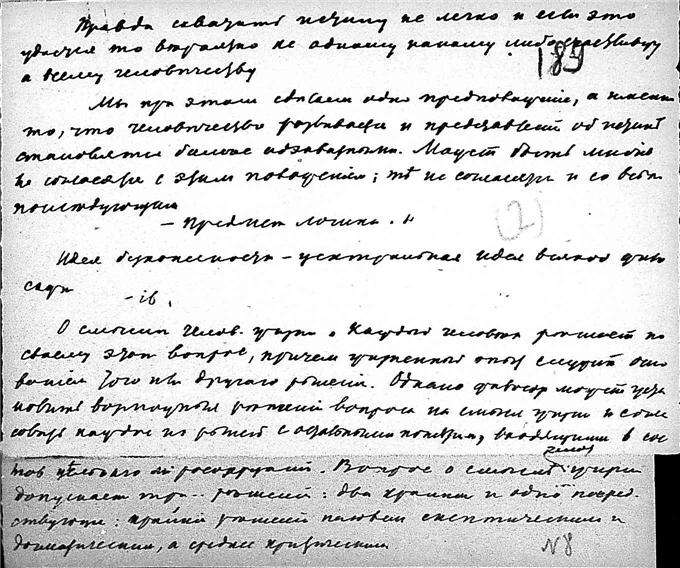 Правда схватить истину не легко и если это
удастся то вероятно не одному какому либо
а всему человечеству
189
Мы при этом сделаем одно предположение, а именно
то, что человечество развивается и представление об истине
становится более адекватным. Может быть многие
не согласятся с этим положением; те не согласятся и со всем
последующим
– Предмет логики.
(2)
Идея – центральная идея всякой фило
софии
– ib.
О смысле челов. жизни. Каждый человек решает по
своему этот вопрос, причем жизненный опыт служит осно
ванием того или другого решения. Однако философ может уста
новить возможные решения вопроса на смысл жизни и
каждое из решений с основными понятиями, входящими в сос
тав цельного миросозерцания. Вопрос о смысле жизни
допускает три решения: два крайних и одно посред
ствующее: крайние решения назовем скептическим и
догматическим, а среднее критическим
N 8